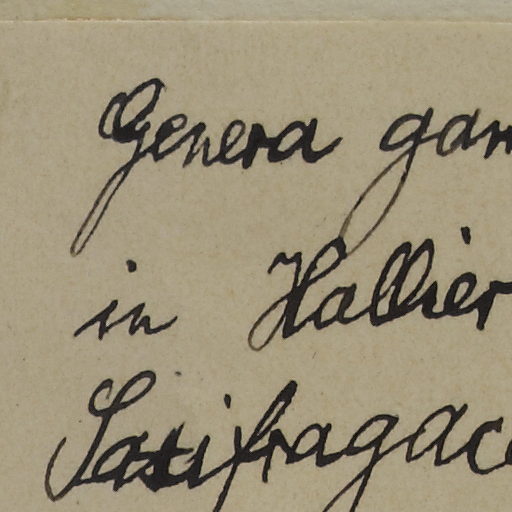 Genera gan
in Hallier
Saxifragac